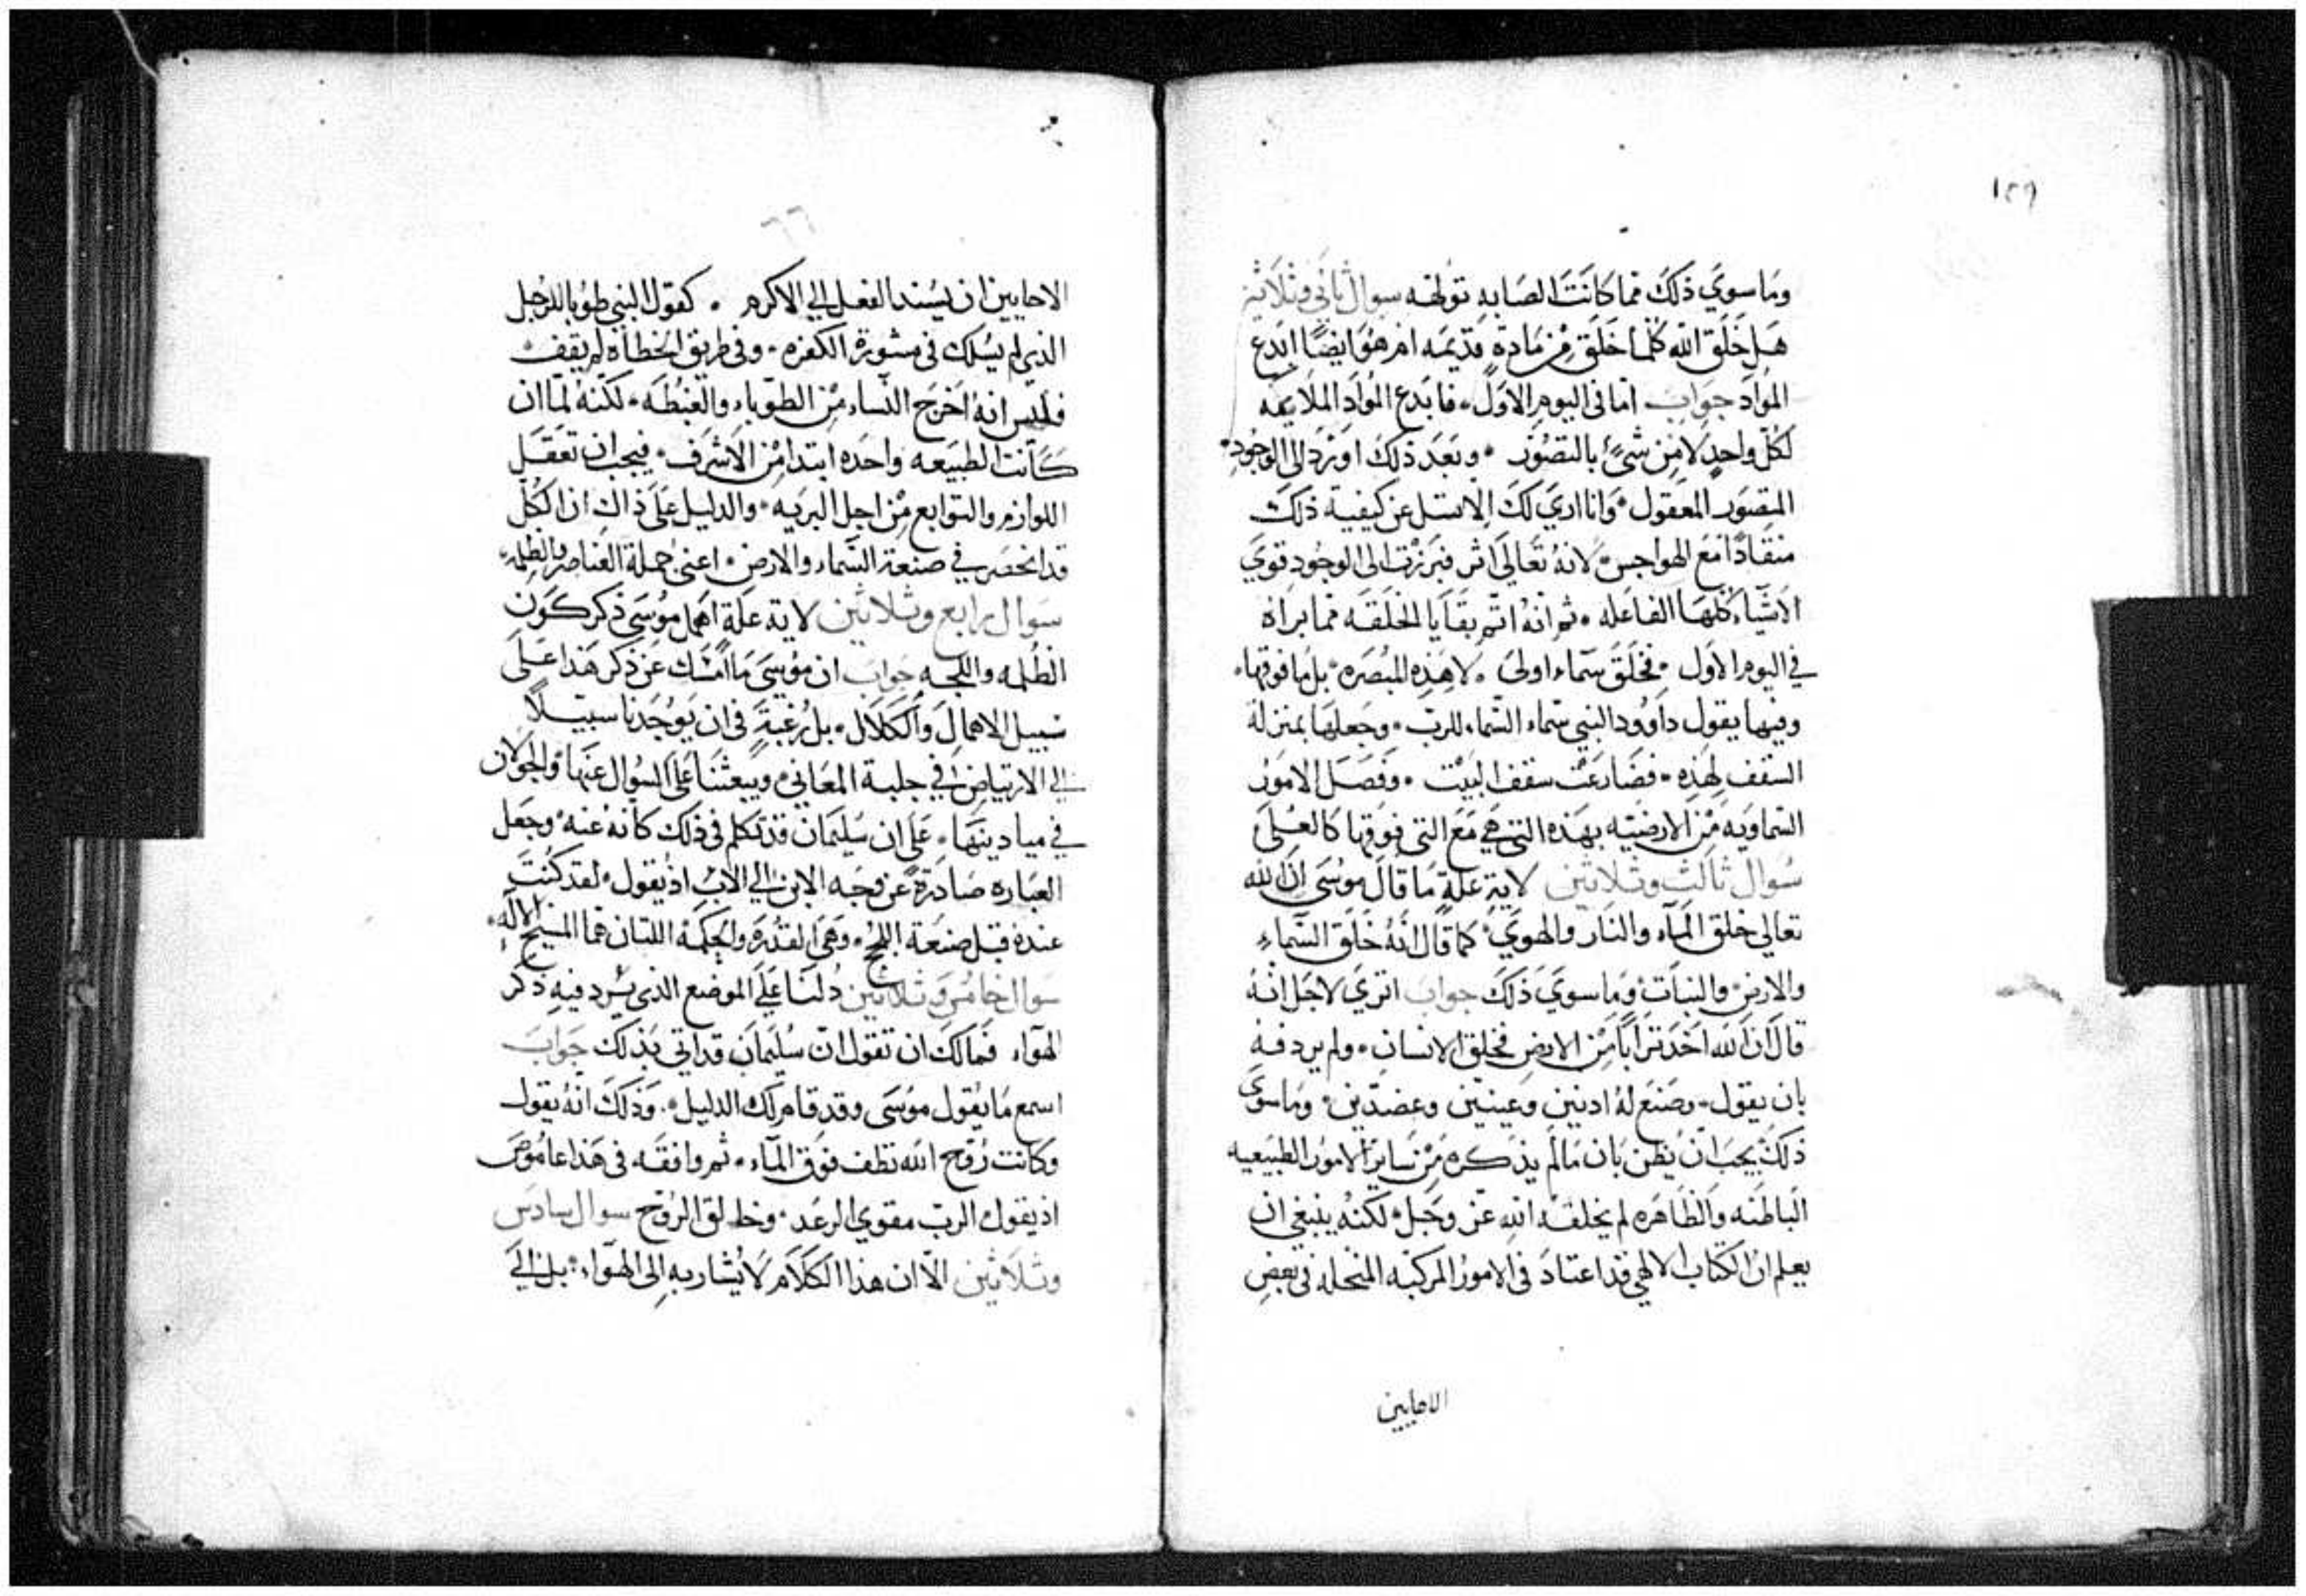 ١٥٩
وَمَا سوَي ذلكَ فما كانَتَ الصَابه تؤلهه سوال ثاني وثلاثين
هَل خَلَق الله كلما خَلَق مِن مَادةٍ قدَيمَه ام هوَ ايضًا ابدَع
الموادَ جوَابَ اما فى اليومِ الاوَل، فابدَع الموَاد الملايمَه
لكُلّ واحدٍ لا مِن شيً بالتصَوُر، وبعَدَ ذلكَ اورَدَ الى الوجُودِ،
المتصَور المعقول، وَانا اريَ لكَ الا تسَل عن كيفية ذلكَ
منقادًا معَ الهواجس، لانهُ تعَالَى اثر فبَرزت الى الوجُودِ قوَي
الاشيَاء كلهَا الفاعَله، ثم انهُ اتم بقَايا الخلَقَه مما براهُ
في اليوم الاول، فخلَقَ سَماء اولى، لا هَذِه المبُصَره، بل مَا فوقها،
وفيها يقول داوُود النبي سَماء السَماء للربّ، وجَعلهَا بمنزلة
السَقف لهَذِه، فضَارعَت سقف البَيْت، وفصَلَ الامورَ
السَماويَه مِن الارضيَه بهَذه التي هيَ مَع التي فوَقها كالعُليَ
سُوال ثالث وثلاثين لاية علةٍ مَا قالَ موُسَى ان الله
تعالى خلق المآء والنار والهوَي، كما قال انهُ خَلق السَمآء
والارضِ والنبَات وَمَا سوَيَ ذَلكَ جوابَ اتري لاجَل انهُ
قالَ ان الله اخَذ ترَابًا مِن الارض فخلق الانسان، ولم يردفهُ
بان يقول، وصَنعَ لهُ اذنين وَعينين وعضدَين، وَمَا سوَي
ذلكَ يجبَ ان يُظن بَان مَا لم يذَكره مِن سَاير الامور الطبيَعيه
البَاطَنه وَالظَاهَره لم يخلقهُ اللهِ عزَ وجَل، لكنهُ ينبغي ان
يعلم ان الكتاب الالاهي قد اعتادَ فى الامورُ المركبَه المنحله فى بعَض
الاحايين
٦٦
الاحايين ان يسُند الفعل الى الاكرم، كقول النبي طوُبا للرجُل
الذي لم يسُلك فى مشورة الكفَره، وفى طريق الخطاة لم يقف،
فليس انهُ اخرَج النسَاء مِن الطوباء والغبطَه، لكنهُ لمّا ان
كَانت الطبيَعه واحدَه ابتدا مِن الاشرَف، فيجب ان تعَقَل
اللوازم والتوابع مِن اجل البريَه، والدليل علَي ذاك ان الكُل
قد انحصَر في صنعة السَماء والارض، اعني جملة العَناصر والظلمه،
سَوال رابع وثلاثين لاية علَةٍ اهمل موُسَي ذكر كوَن
الظلُمه واللجه جوابَ ان موُسَي مَا امسَك عَن ذكر هَذا علَى
سَبيل الاهمالِ وَالكَلَال، بل رُغبةً فى ان يَوُجَدنا سبيَلاً
الي الارتياضِ في جلبة المعَاني، ويَبعثنَا عَلَى السوُال عنهَا وَالجَولان
في ميادينهَا، عَلَى ان سُليمَان قد تكلم فى ذلكَ كانهُ عنهُ، وجَعل
العبَاره صَادرةً عن وجَه الابن الي الابْ اذ يَقول، لقد كنُتَ
عندهُ قبَل صنعَة اللجُج، وهَي القُدَره والحِكمَه اللتان هما المسَيح الالَه
سَوال خامس وثلاثين دُلنَا عَلَي الموضع الذي يسُرد فيهِ ذكر
الهوَآء فمَا لكَ ان تقول انّ سُليمَان قد اتي بذَلك جَوابَ
اسمع مَا يقول موُسَى وقد قام لك الدليل، وذَلكَ انهُ يقول
وكانت رُوح الله تطف فوق المآء، ثم وافقَه فى هَذا عامُوصَ
اذ يقول الربّ مقوي الرعَد، وخالق الرُوح سوال سادسَ
وثلَاثيَن الّا ان هذا الكَلَام لا يشُار بهِ الى الهوَاء، بل الَى